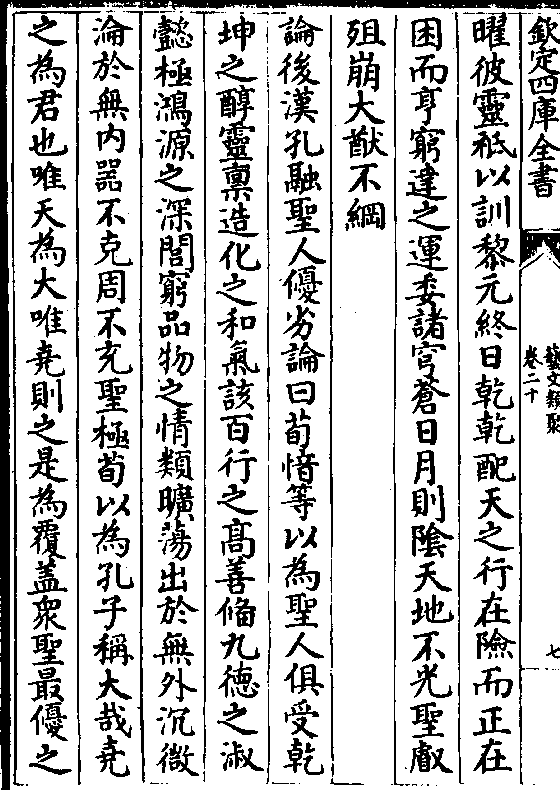 欽定四庫全書
藝文類聚
卷二十
七
曜彼靈祗以訓黎元終日乾乾配天之行在險而正在
困而亨窮達之運委諸穹蒼日月則陰天地不光聖叡
殂崩大猷不綱
論後漢孔融聖人優劣論曰荀愔等以為聖人俱受乾
坤之醇靈稟造化之和氣該百行之高善備九德之淑
懿極鴻源之深閭窮品物之情類曠蕩出於無外沉微
淪於無内器不克周不充聖極荀以為孔子稱大哉堯
之為君也唯天為大唯堯則之是為覆蓋衆聖最優之